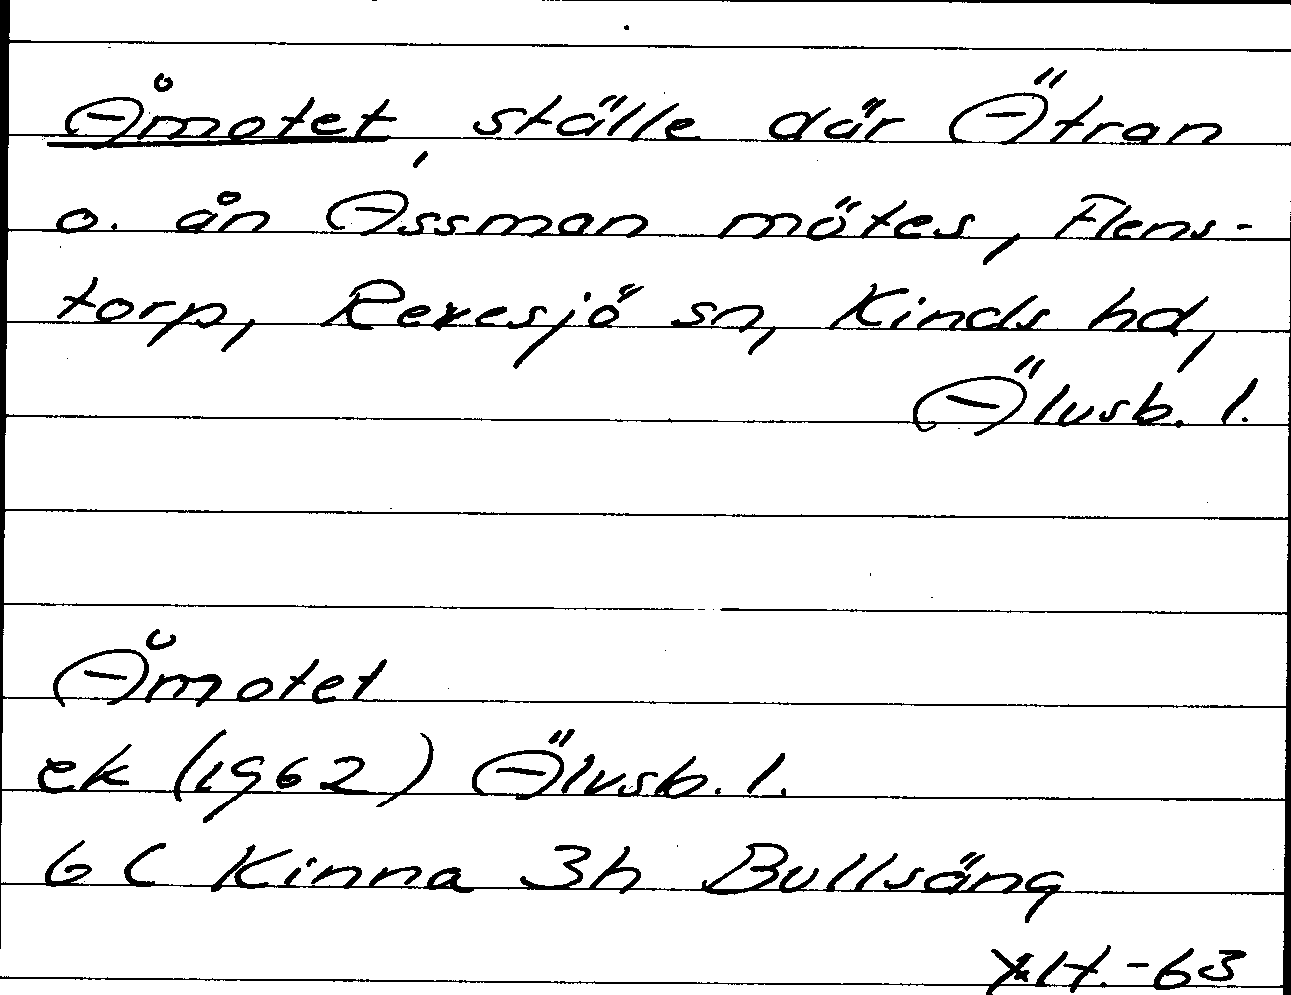 Åmotet, ställe där Ätran
o. ån Assman mötes, Flens-
torp, Revesjö sn, Kinds hd,
Älvsb. l.
Åmotet
ek (1962) Älvsb. l.
6 C Kinna 3h Bullsäng
-63